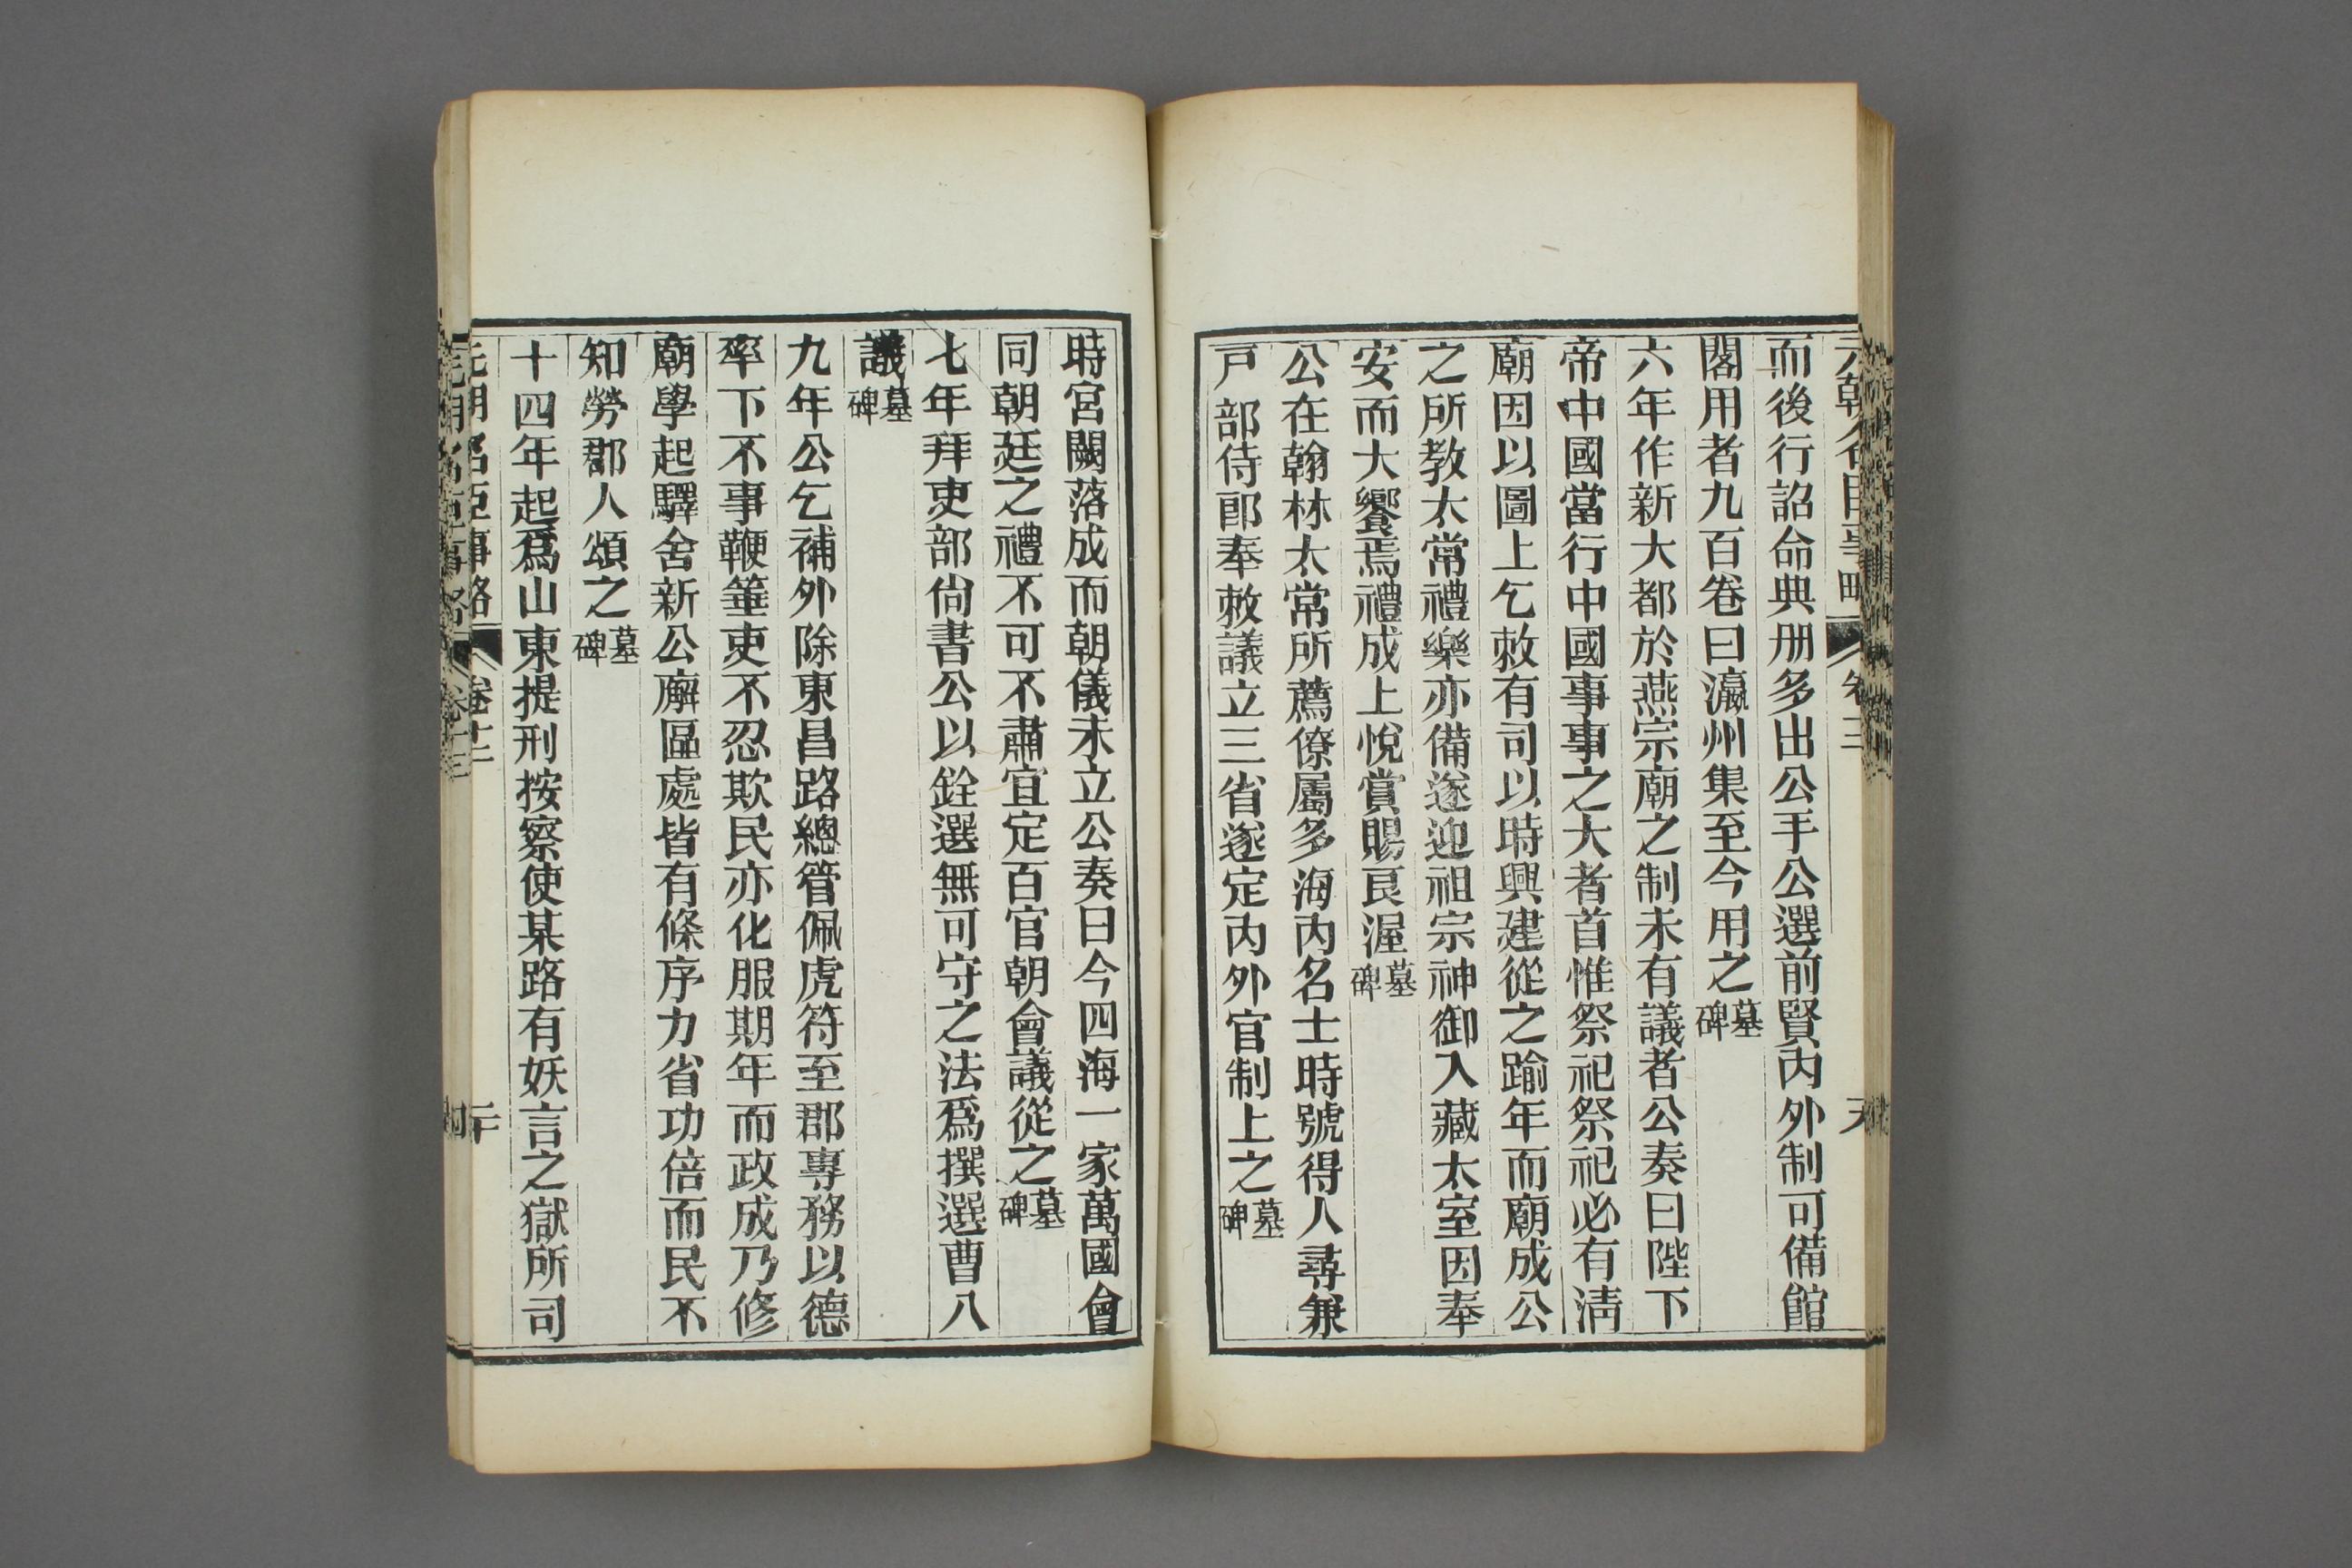 而後行詔命典册多出公手公選前賢內外制可備館
閣用者九百卷曰瀛州集至今用之墓碑
六年作新大都於燕宗廟之制未有議者公奏曰陛下
帝中國當行中國事事之大者首惟祭祀祭祀必有清
廟因以圖上乞敕有司以時興建從之踰年而廟成公
之所教太常禮樂亦備遂迎祖宗神御入藏太室因奉
安而大饗焉禮成上悅賞賜良渥墓碑
公在翰林太常所薦僚屬多海內名士時號得人尋兼
戸部侍郎奉敕議立三省遂定內外官制上之墓碑
時宮闕落成而朝儀未立公奏曰今四海一家萬國會
同朝廷之禮不可不肅宜定百官朝會議從之墓碑
七年拜吏部尙書公以銓選無可守之法爲撰選曹八
議墓碑
九年公乞補外除東昌路總管佩虎符至郡專務以德
率下不事鞭箠吏不忍欺民亦化服期年而政成乃修
廟學起驛舍新公廨區處皆有條序力省功倍而民不
知勞郡人頌之墓碑
十四年起爲山東提刑按察使某路有妖言之獄所司
元朝名臣事略
卷十二